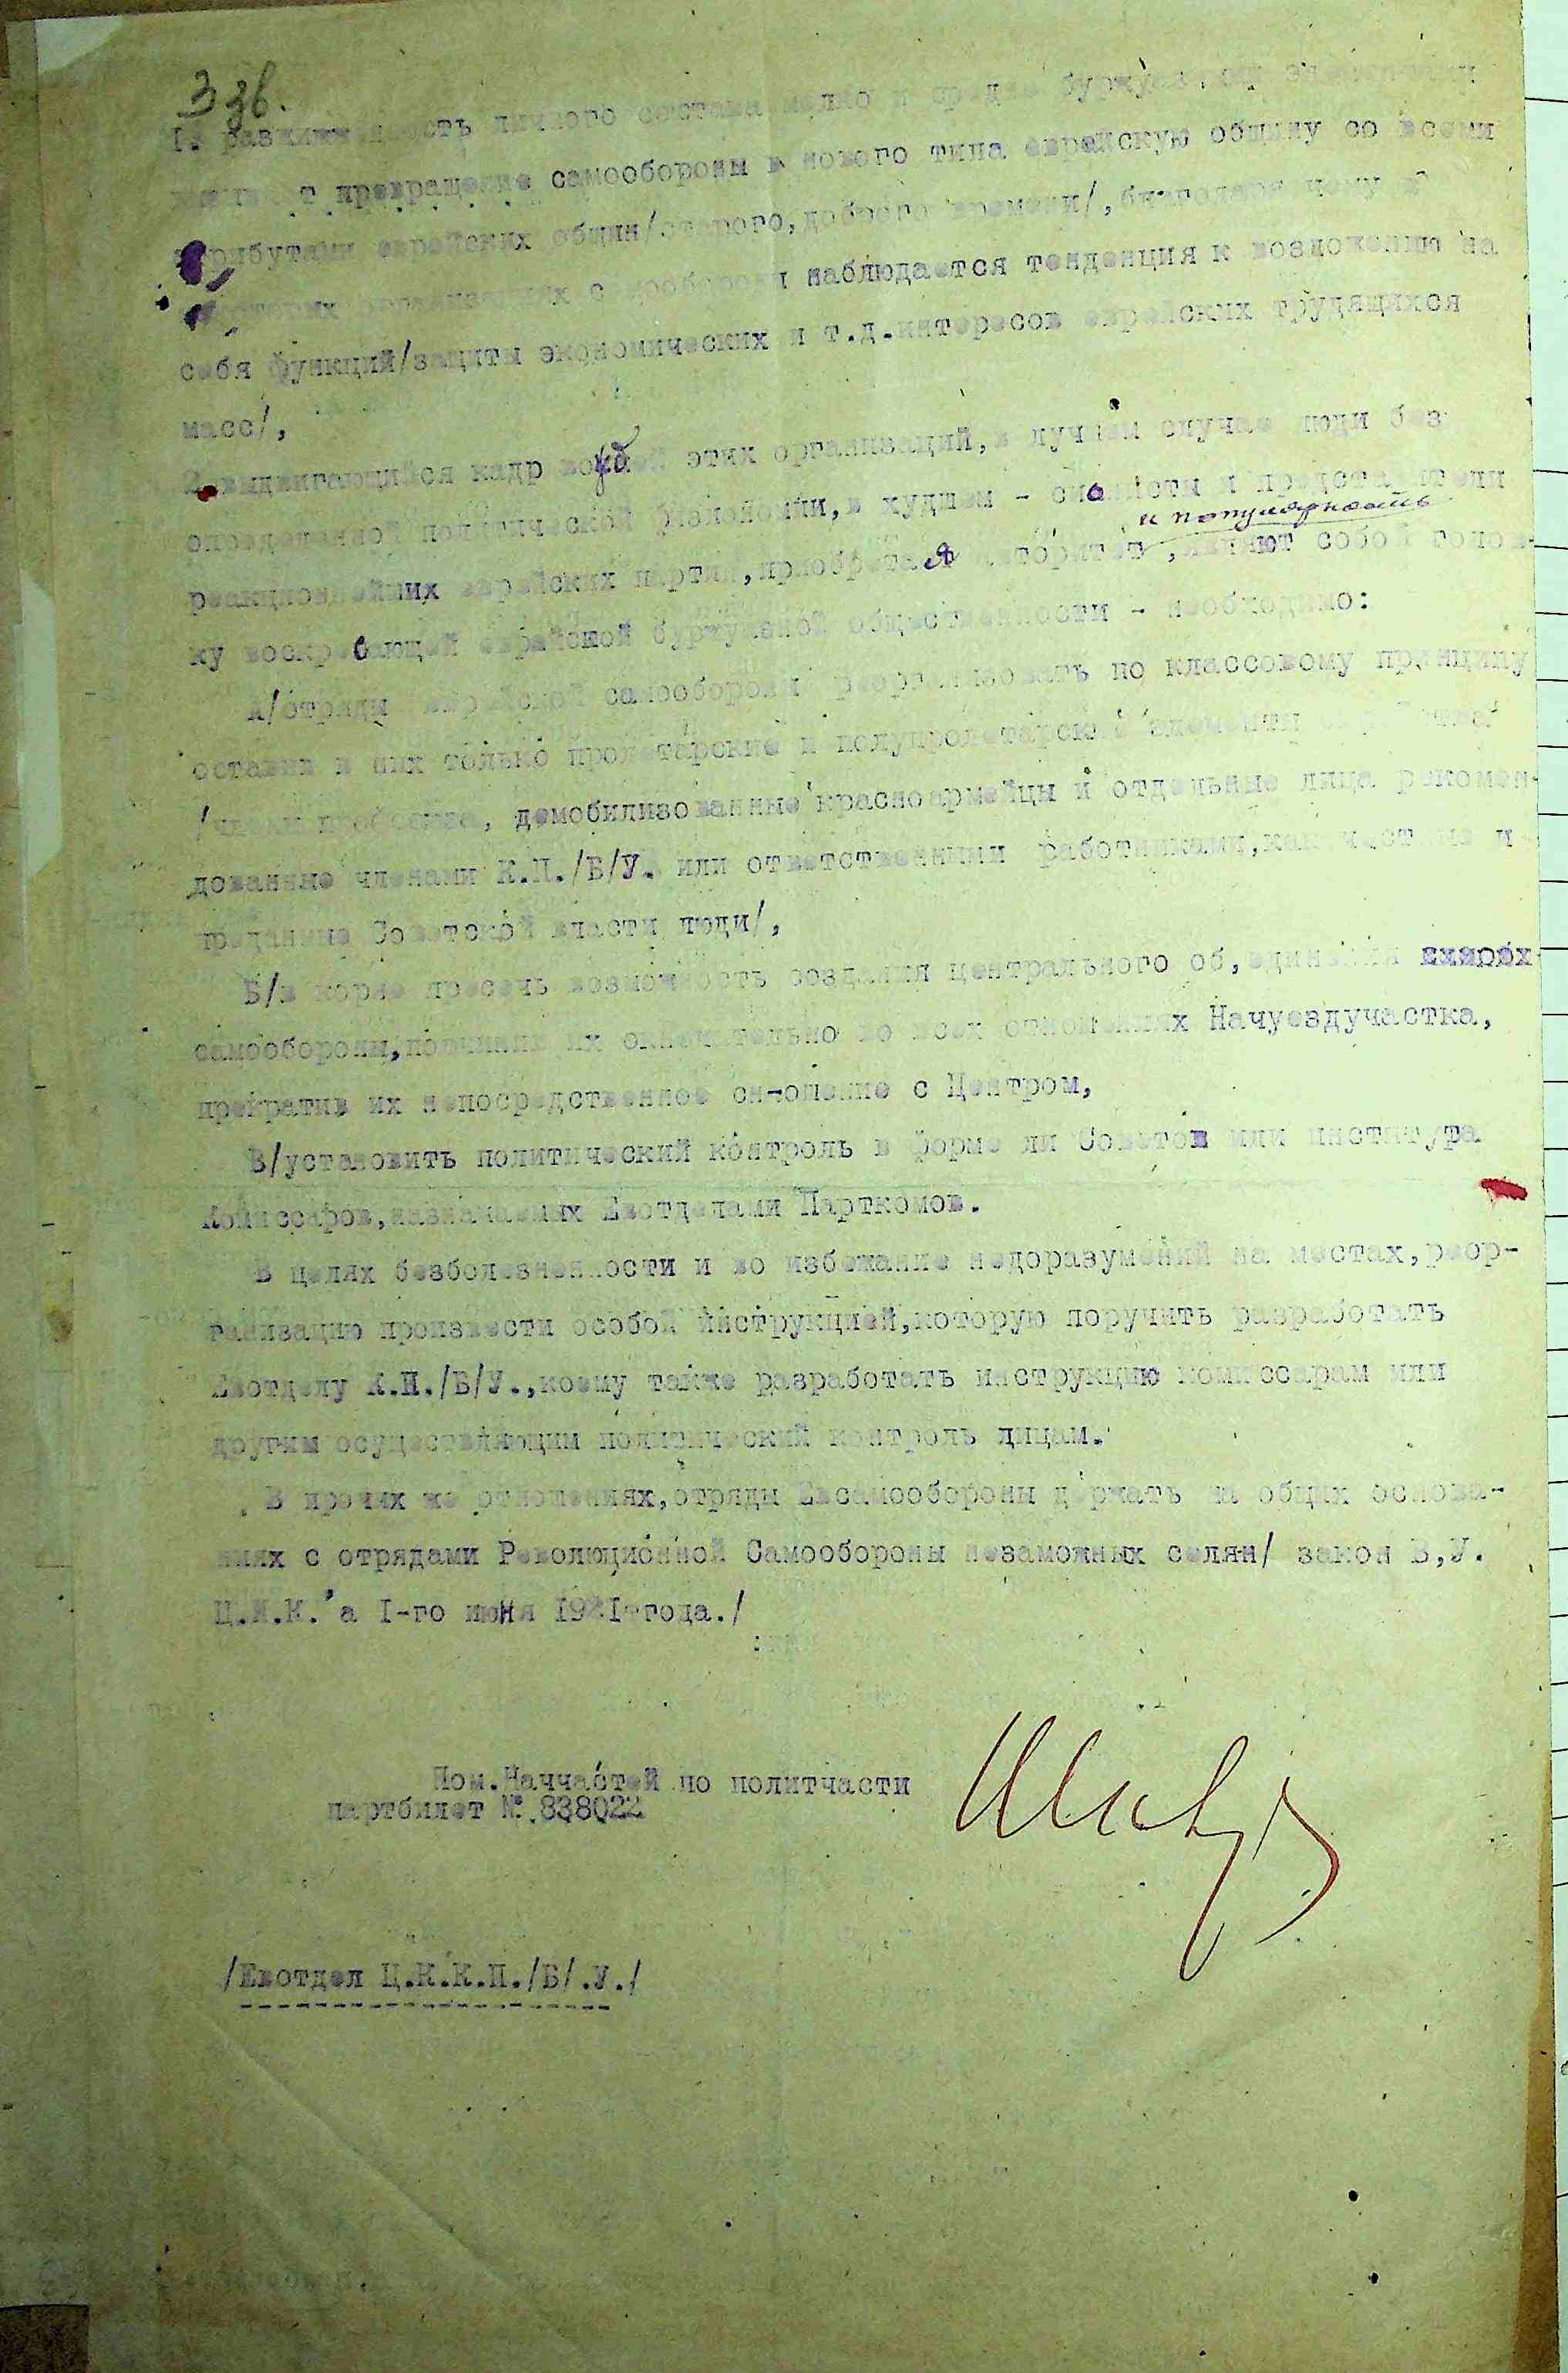 1. ность личного состава мелко и средне буржуазными элементами
превращение самообороны в нового типа еврейскую общину со всеми
атрибутами еврейских общин/старого,доброго времени/,благодаря чему в
организациях самообороны наблюдается тенденция к возложению на
себя функций/защиты экономических и т.д.интересов еврейских трудящихся
масс/,
2.выдвигающийся кадр вождей этих организаций,в лучшем случае люди без
определенной политической физиономии,в худшем - сионисты и представители
и популярность
реакционнейших еврейских партий,приобретая авторитет,являют собой голов-
ку воскресающей еврейской буржуазной общественности - необходимо:
А/отряды еврейской самообороны реорганизовать по классовому принципу
оставив в них только пролетарские и полупролетарские элементы
/члены профсоюза, демобилизованные красноармейцы и отдельные лица рекомен-
дованные членами К.П./Б/У. или ответственными работниками,как честные и
преданные Советской власти люди/,
Б/в корне пресечь возможность создания центрального об,единения
самообороны,подчинив их окончательно во всех отношениях Начуездучастка,
прекратив их непосредственное сношение с Центром,
В/установить политический контроль в форме ли Советов или института
Комиссаров,назначаемых Евотделами Парткомов.
В целях безболезненности и во избежание недоразумений на местах,реор-
ганизацию произвести особой инструкцией,которую поручить разработать
Евотделу К.П./Б/У.,коему также разработать инструкцию комиссарам или
другим осуществляющим политический контроль лицам.
В прочих же отношениях,отряды Евсамообороны держать на общих основа-
ниях с отрядами Революционной Самообороны незаможных селян/ закон В,У.
Ц.И.К.'а I-го июня 1921-года./
Пом.Наччастей по политчасти
партбилет №.838022
/Евотдел Ц.К.К.П./Б/.У./